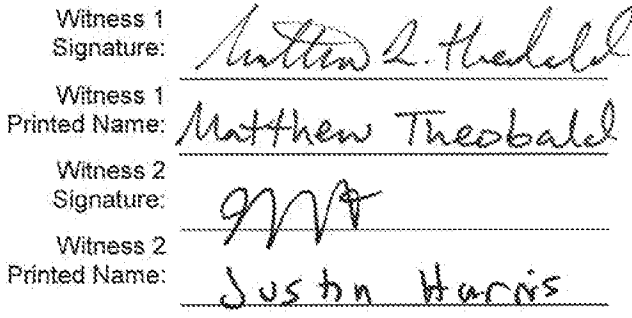 Witness 1
Signature: Matthew L. Theobald
Witness 1
Printed Name: Matthew Theobald
Witness 2
Signature:
Witness 2
Printed Name: Justin Harris